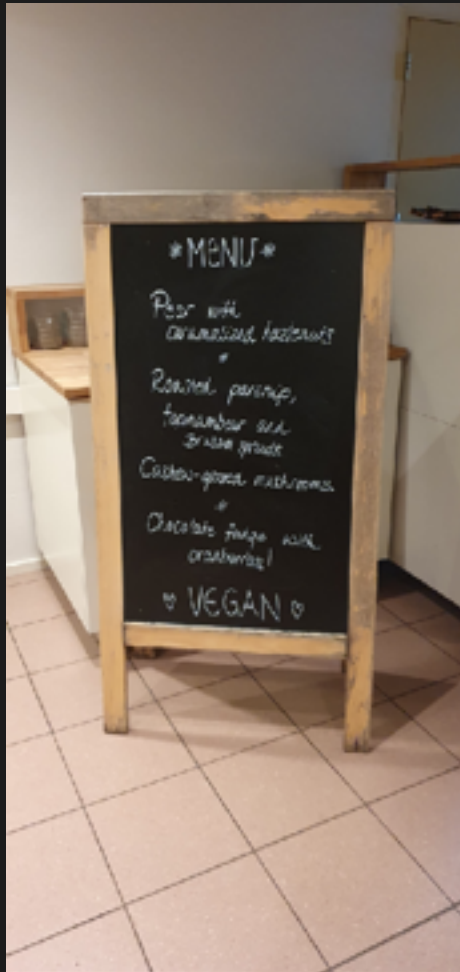 *MENU*
Pear with
caramelised hazelnuts
*
Roasted parsnip,
topinambur and
Cashew-greed mushrooms
*
Chocolate fudge with
cranberries!
♡ VEGAN ♡